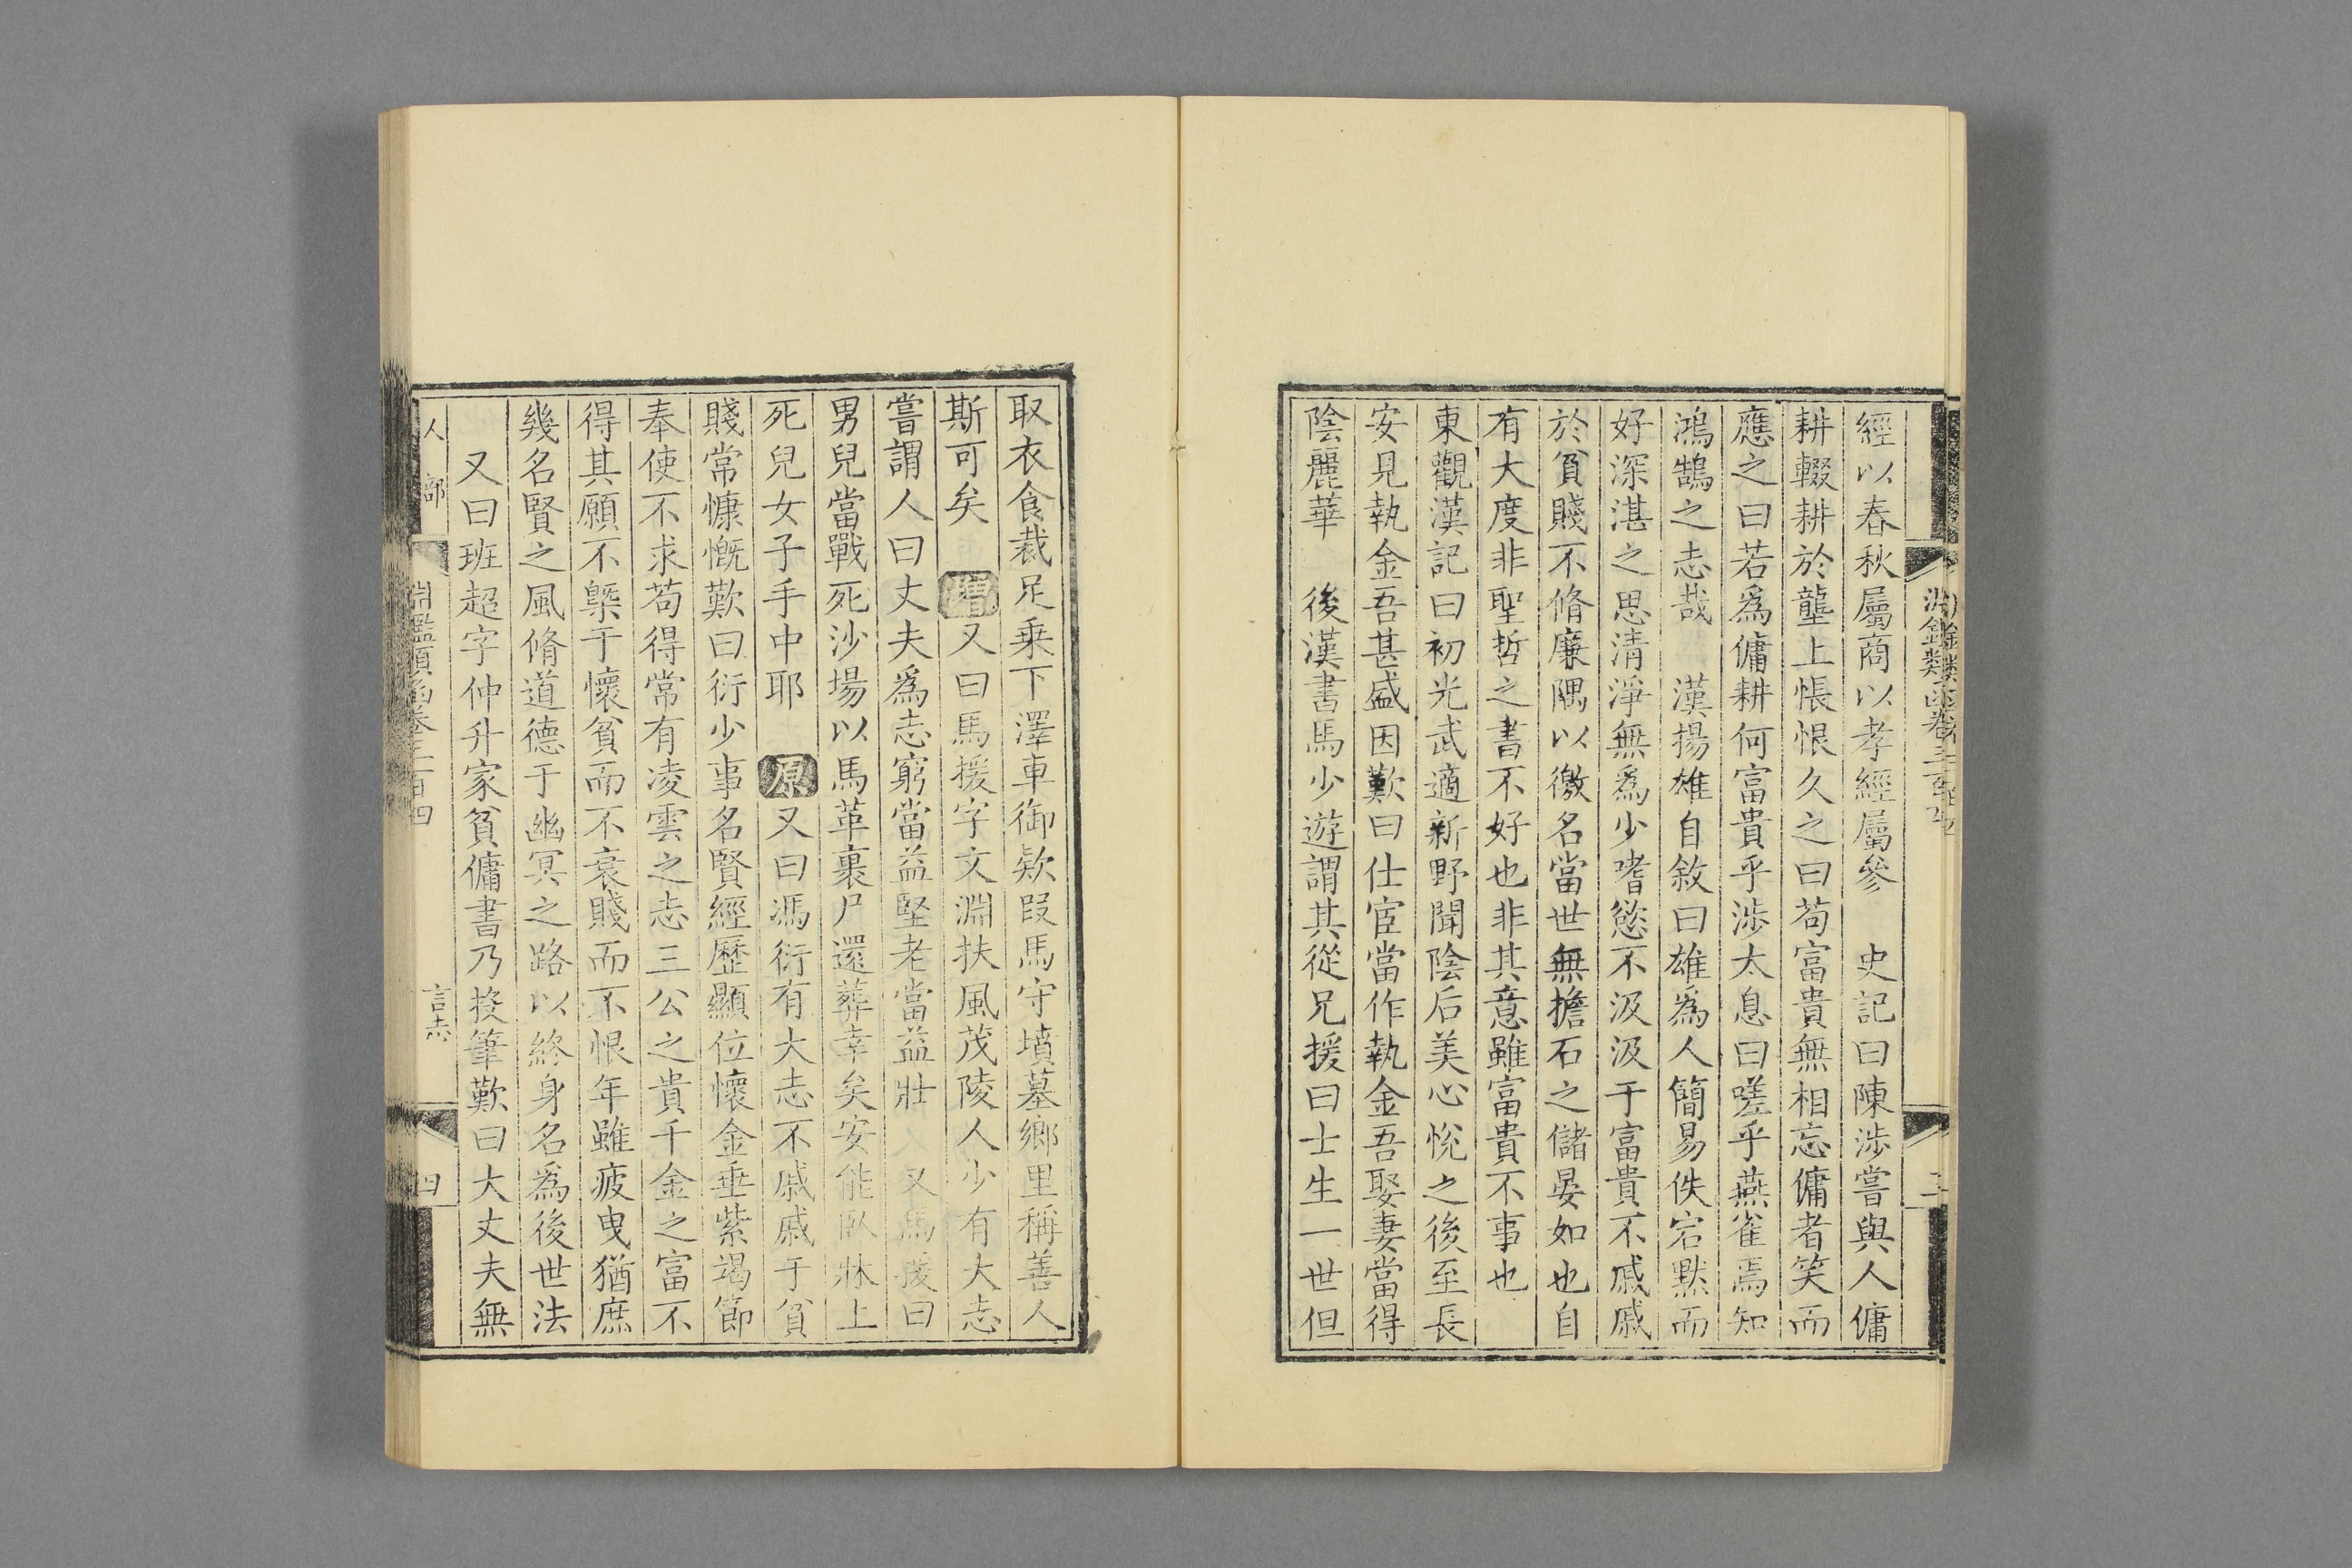 經以春秋屬商以孝經屬參　史記曰陳涉嘗與人傭
耕輟耕於壟上悵恨久之曰苟富貴無相忘傭者笑而
應之曰若爲傭耕何富貴乎涉太息曰嗟乎燕雀焉知
鴻鵠之志哉　漢揚雄自敘曰雄爲人簡易佚宕默而
好深湛之思清淨無爲少嗜慾不汲汲于富貴不戚戚
於貧賤不脩廉隅以徼名當世無擔石之儲晏如也自
有大度非聖哲之書不好也非其意雖富貴不事也
東觀漢記曰初光武適新野聞陰后美心悅之後至長
安見執金吾甚盛因歎曰仕宦當作執金吾娶妻當得
陰麗華　後漢書馬少遊謂其從兄援曰士生一世但
取衣食裁足乗下澤車御欵段馬守墳墓鄉里稱善人
斯可矣　增又曰馬援字文淵扶風茂陵人少有大志
嘗謂人曰丈夫爲志窮當益堅老當益壯　又馬援曰
男兒當戰死沙場以馬革裹尸還葬幸矣安能臥牀上
死兒女子手中耶　原又曰馮衍有大志不戚戚于貧
賤常慷慨歎曰衍少事名賢經歷顯位懷金垂紫竭節
奉使不求苟得常有凌雲之志三公之貴千金之富不
得其願不槩于懷貧而不衰賤而不恨年雖疲曳猶庶
幾名賢之風脩道德于幽冥之路以終身名爲後世法
又曰班超字仲升家貧傭書乃投筆歎曰大丈夫無
人部　淵鑑類函卷三百四　言志　四